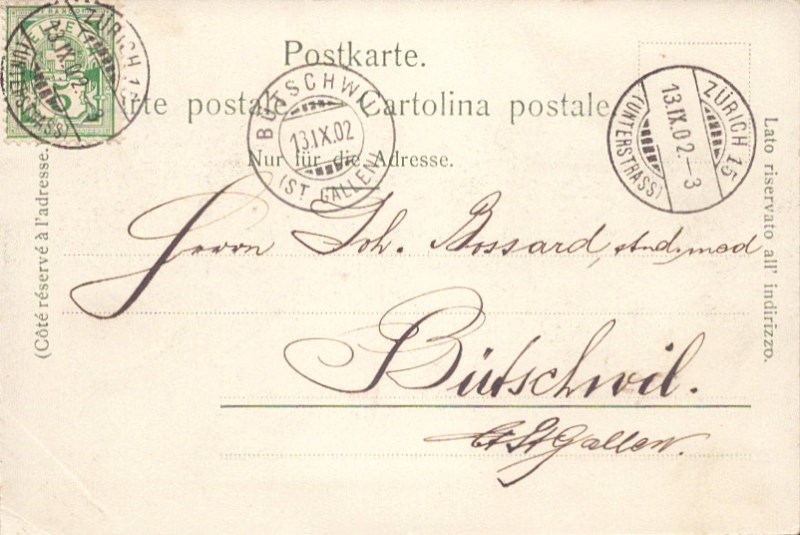 Postkarte.
Carte postale. Cartolina postale.
Nur für die Adresse.
(Côté réservé à l'adresse.
Lato riservato all' indirizzo.
ZÜRICH 15
13.IX.02.
(UNTERSTRASS)
BÜTSCHWIL
13.IX.02
(ST. GALLEN)
ZÜRICH 15
13.IX.02.–3
(UNTERSTRASS)
Herrn Joh. Bossard, stud. med
Bütschwil.
Ct. St. Gallen.